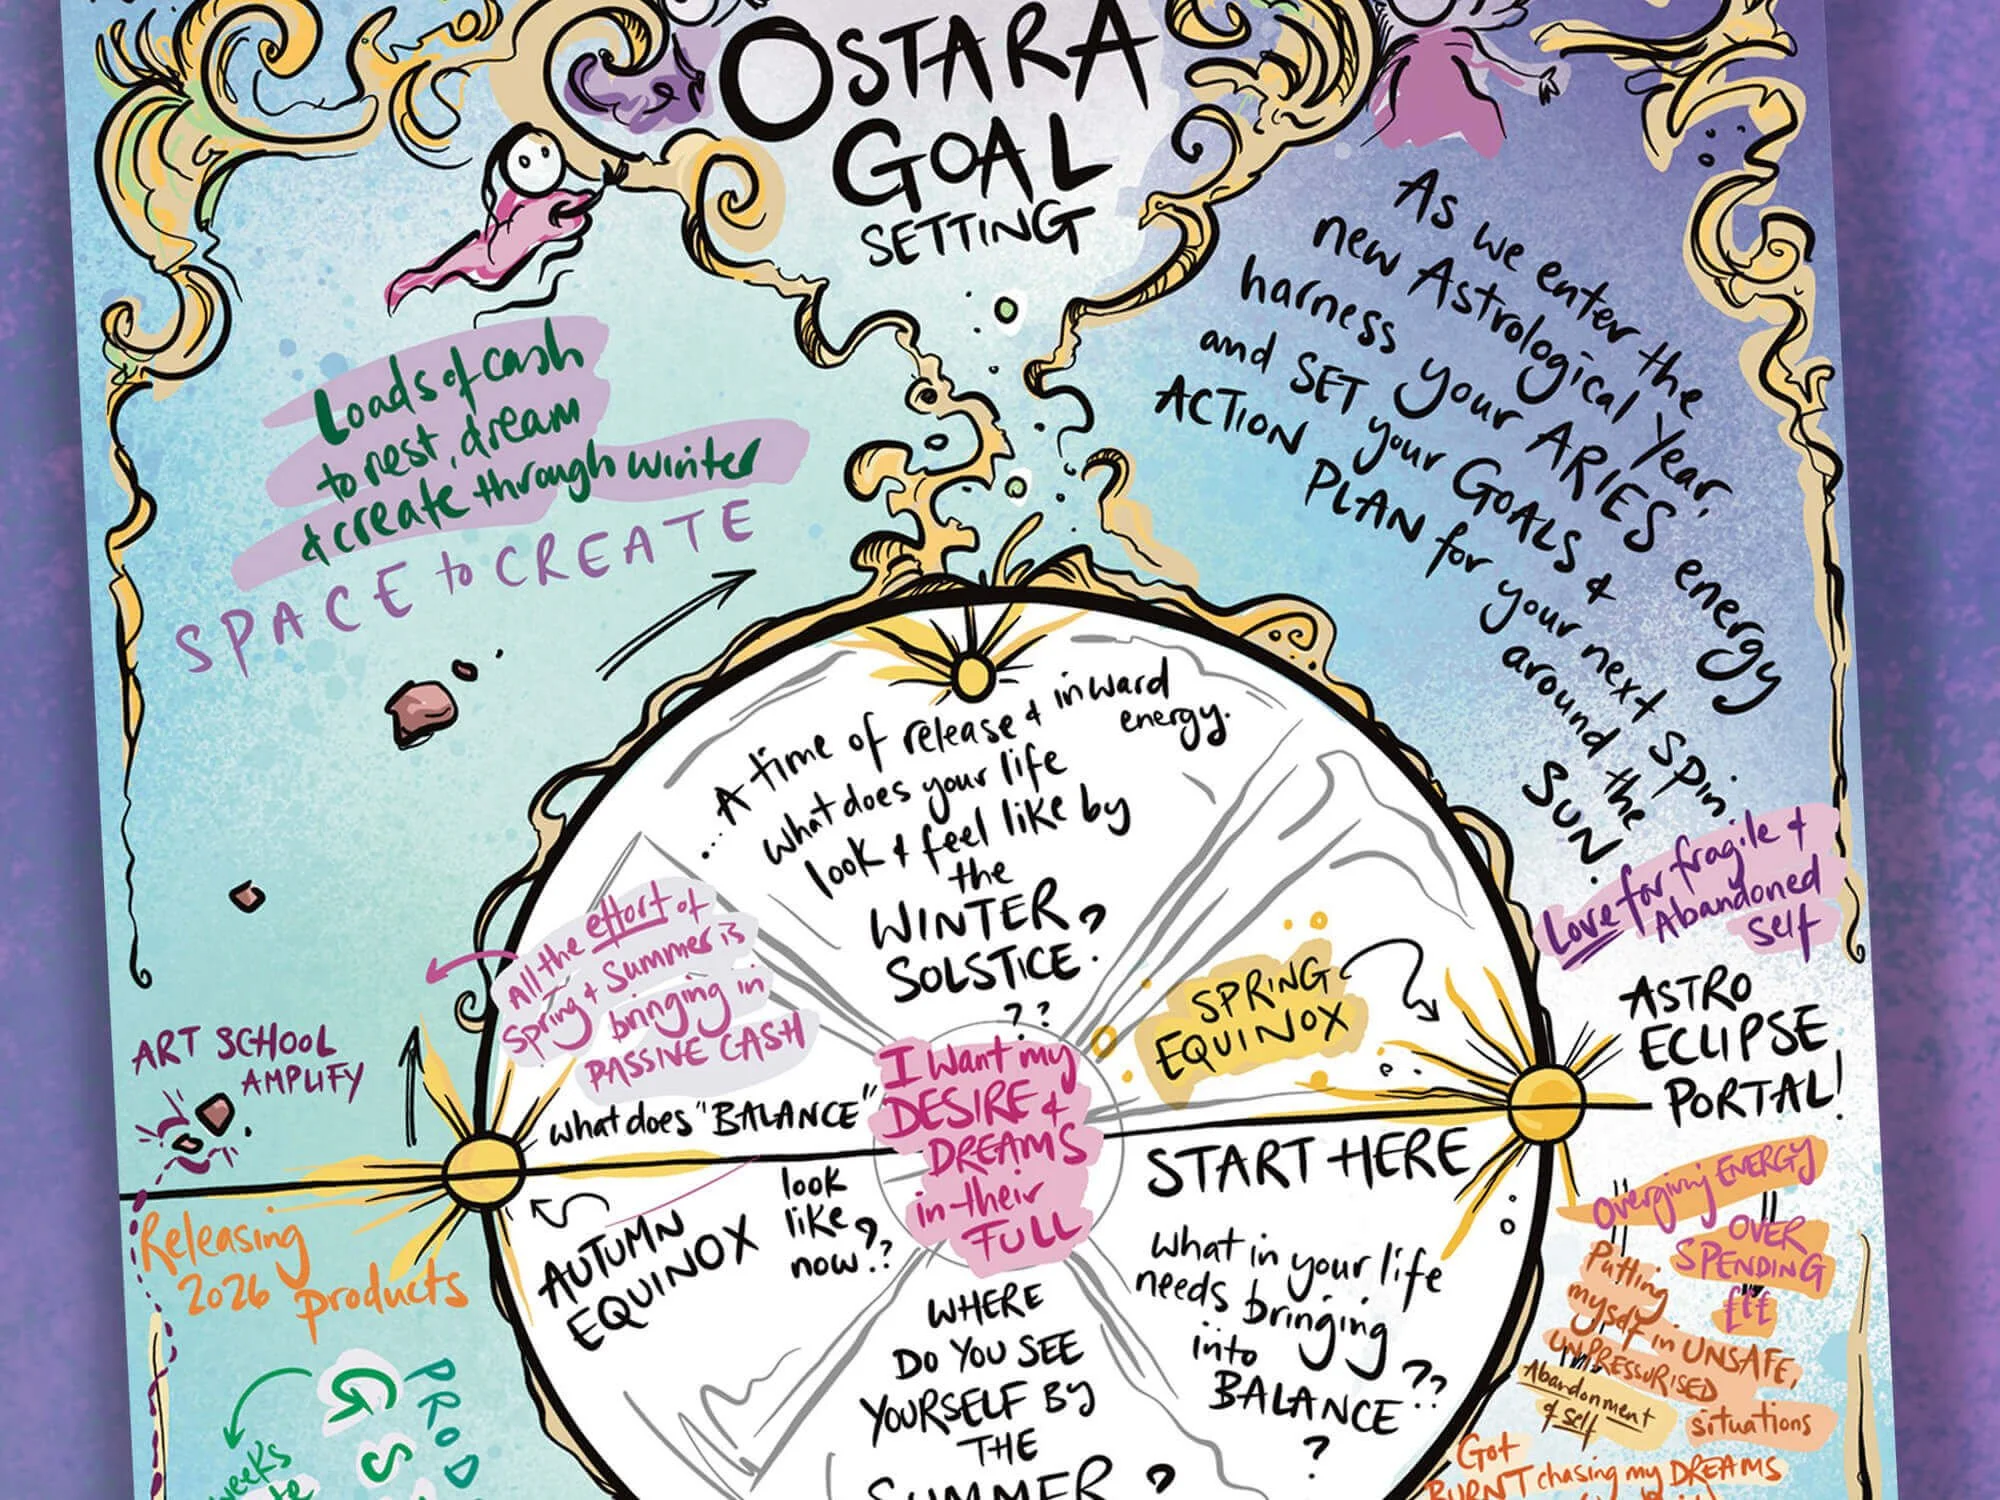 OSTARA
GOAL
SETTING
As we enter the
new Astrological Year,
harness your ARIES energy
and SET your GOALS &
ACTION PLAN for your next spin
around the
SUN.
Loads of cash
to rest, dream
& create through winter
SPACE to CREATE
...A time of release & inward
energy.
What does your life
look & feel like by
the
WINTER
SOLSTICE?
??
Love for fragile &
Abandoned
self
All the effort of
Spring & Summer is
bringing in
PASSIVE CASH
SPRING
EQUINOX
ASTRO
ECLIPSE
PORTAL!
ART SCHOOL
AMPLIFY
What does "BALANCE"
look
like
now??
I want my
DESIRE &
DREAMS
in their
FULL
START HERE
AUTUMN
EQUINOX
What in your life
needs bringing
into
BALANCE??
?
Overgiving ENERGY
OVER
SPENDING
£££
Putting
myself in UNSAFE,
UNPRESSURISED
situations
Abandonment
of self
Releasing
2026 Products
WHERE
DO YOU SEE
YOURSELF BY
THE
SUMMER?
Got
BURNT chasing my DREAMS
PROD
G
S
weeks